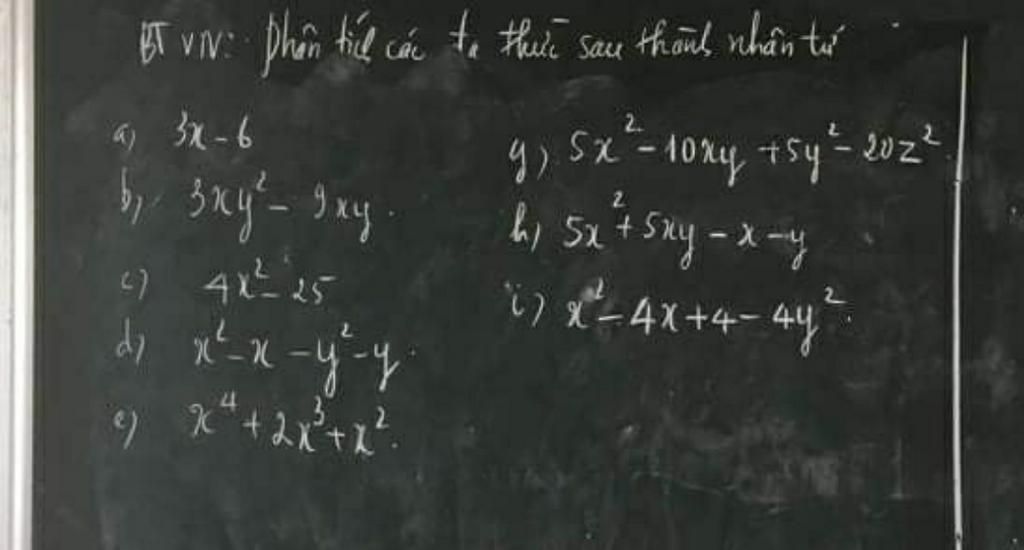 BT VN: phân tích các đa thức sau thành nhân tử
a) 3x - 6
b) 3xy² - 9xy.
c) 4x² - 25
d) x² - x - y² - y.
e) x⁴ + 2x³ + x².
g) 5x² - 10xy + 5y² - 20z².
h) 5x² + 5xy - x - y
i) x² - 4x + 4 - 4y².